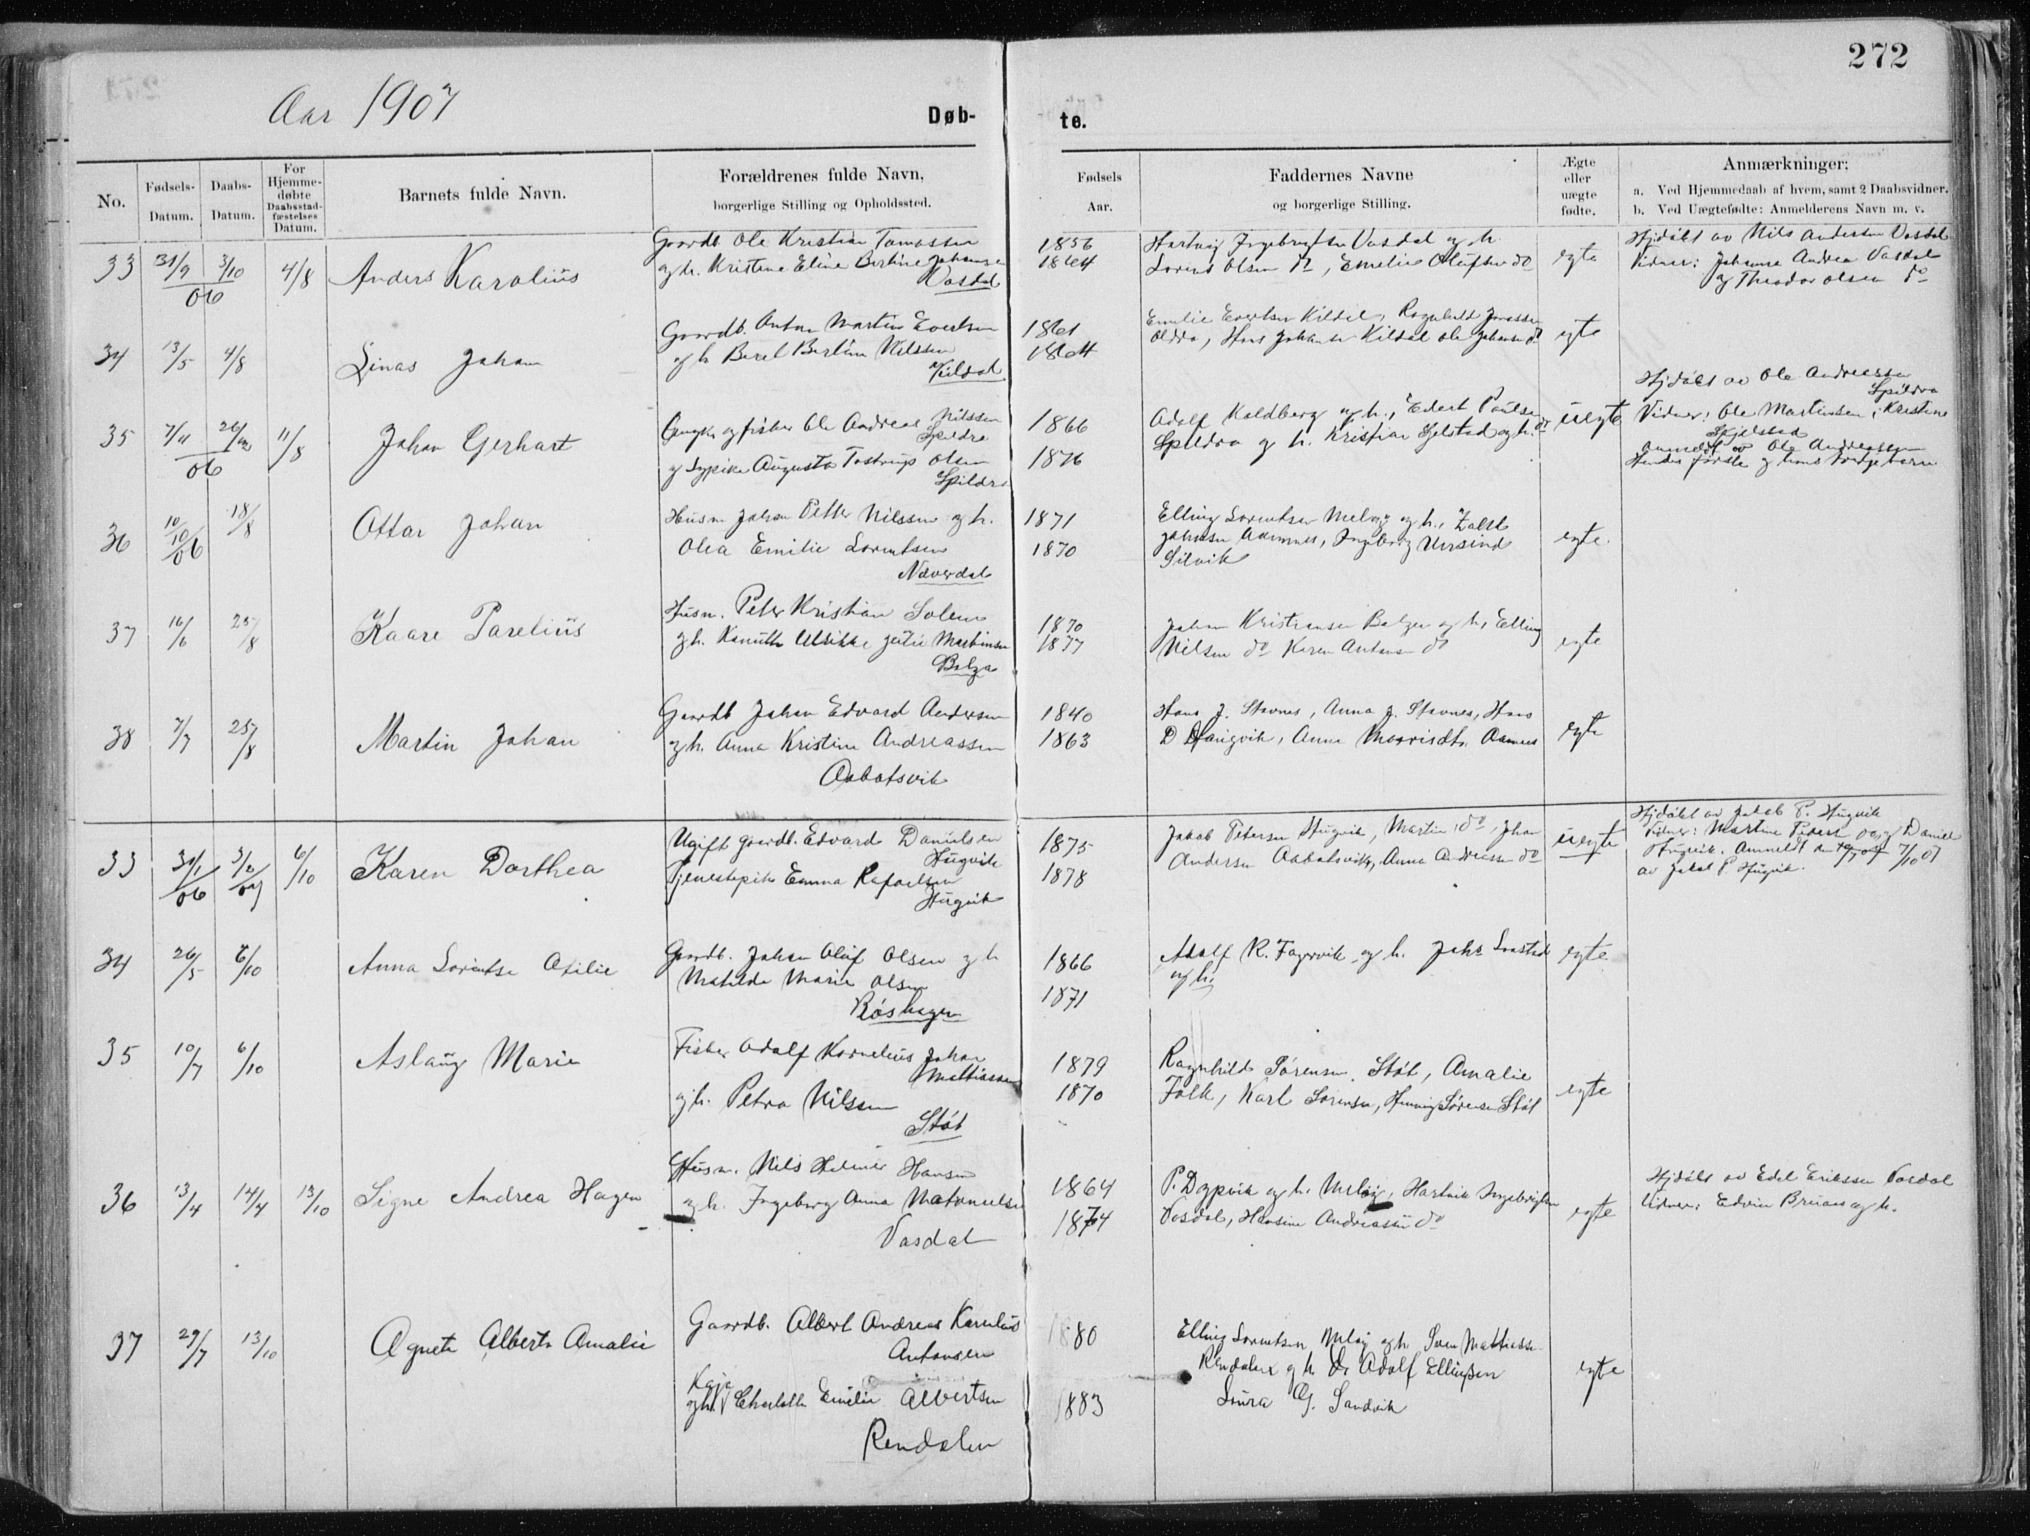 272
Aar 1907
Døb-
te.
No.
Fødsels-
Datum.
Daabs-
Datum.
For
Hjemme-
døbte
Daabsstad-
fæstelses
Datum.
Barnets fulde Navn.
Forældrenes fulde Navn,
borgerlige Stilling og Opholdssted.
Fødsels
Aar.
Faddernes Navne
og borgerlige Stilling.
Ægte
eller
uægte
fødte.
Anmærkninger;
a. Ved Hjemmedaab af hvem, samt 2 Daabsvidner.
b. Ved Uægtefødte: Anmelderens Navn m. v.
33 3/10 06 4/8 Anders Karolius
Gaardb. Ole Kristian Tomassen
og h. Kristine Eline Johansen
Vasdal
1856
1864
Hartvig Ingebrigtsen Vasdal og h.
Lorens Olsen do, Emelie Olufsen do
egte
Hjdøbt av Nils Andersen Vasdal
Vidner: Johanna Andrea Vasdal
og Theodor Olsen do
34 13/5 4/8 Linas Johan
Gaardb. Anton Martin Evertsen
og h. Berel Nilssen
Kildal
1861
1864
Emelie Evertsen Kildal, Ragnhild Jonassen
Oldra, Hans Johansen Kildal Ole Johansen do
egte
35 7/11 06 11/8 Johan Gerhart
Ungk. og fisker Ole Andreas Nilssen
Spildra
og Augusta Tostrup Olsen
Spildra
1866
1876
Adolf Koldberg og h., Edert Paulsen
Spildra og h. Kristian Hjelstad og h. do
uegte
Hjdøbt av Ole Andreassen
Spildra
Vidner: Ole Martinsen, Kristine
Anmeldt av Ole Andreassen
Hendes første og hans tredje barn
36 10/10 06 18/8 Ottar Johan
Husm. Johan Petter Nilssen og h.
Olea Emilie Lorentsen
Næverdal
1871
1870
Elling Lorentsen Meløy og h.,
Johnsen Aamnes, Ingeborg
Silvik
egte.
37 16/6 25/8 Kaare Parelius
Husm. Peter Kristian Solem
og h. Julie Martinsen
Bolga
1870
1877
Johan Kristiansen Bolgen og h., Elling
Nilsen do Karen Antonsen do
egte
38 7/7 25/8 Martin Johan
Gaardb Johan Edvard Andersen
og h. Anna Kristine Andreassen
Aabotsvik
1840
1863
Hans J. Stavnes, Anna J. Stavnes, Hans
D Haugvik, Anna Aamnes
egte
33 06 07 6/10 Karen Dorthea
Ugift gaardb. Edvard Danielsen
Hugvik
Tjenestepike Emma Rafaelsen
Hugvik
1875
1878
Jakob Petersen Hugvik, Martin do, Johan
Andersen Aabotsvik, Anna Andreassen do
uegte
Hjdøbt av Jakob P. Hugvik
Vidner: Martine Petersen og Daniel
Hugvik. Anmeldt den 7/10 07
av Jakob P. Hugvik.
34 26/5 6/10 Anna Lorentse Otilie
Gaardb. Johan Oluf Olsen og h
Matilde Marie Olsen
Røshagen
1866
1871
Adolf R. Fagervik og h.
og h.
egte
35 10/7 6/10 Aslaug Marie
Fisker Adolf Kornelius Johan
Mattiassen
og h. Petra Nilssen
Støt
1879
1870
Ragnhild Sørensen Støt, Amalie
Falk, Karl Sørensen, Henning Sørensen Støt
egte
36 13/4 14/4 13/10 Signe Andrea Hagen
Husm. Nils Helmer Hansen
og h. Ingeborg Anna
Vasdal
1864
1874
P. Dagsvik og h. Meløy, Hartvik Ingebrigtsen
Vasdal, Hansine Andreassen do
egte
Hjdøbt av Edel Erikssen Vasdal
Vidner: Edvin Bruaas og h.
37 29/7 13/10 Agnete Alberte Amalie
Gaardb. Albert Andreas Kornelius
Antonsen
Kaja
og h. Charlotte Emilie Albertsen
Rendalen
1880
1883
Elling Lorentsen Meløy og h. Sara Mattiassen
Rendalen og h. Adolf Ellingsen
Laura G. Sandvik
egte